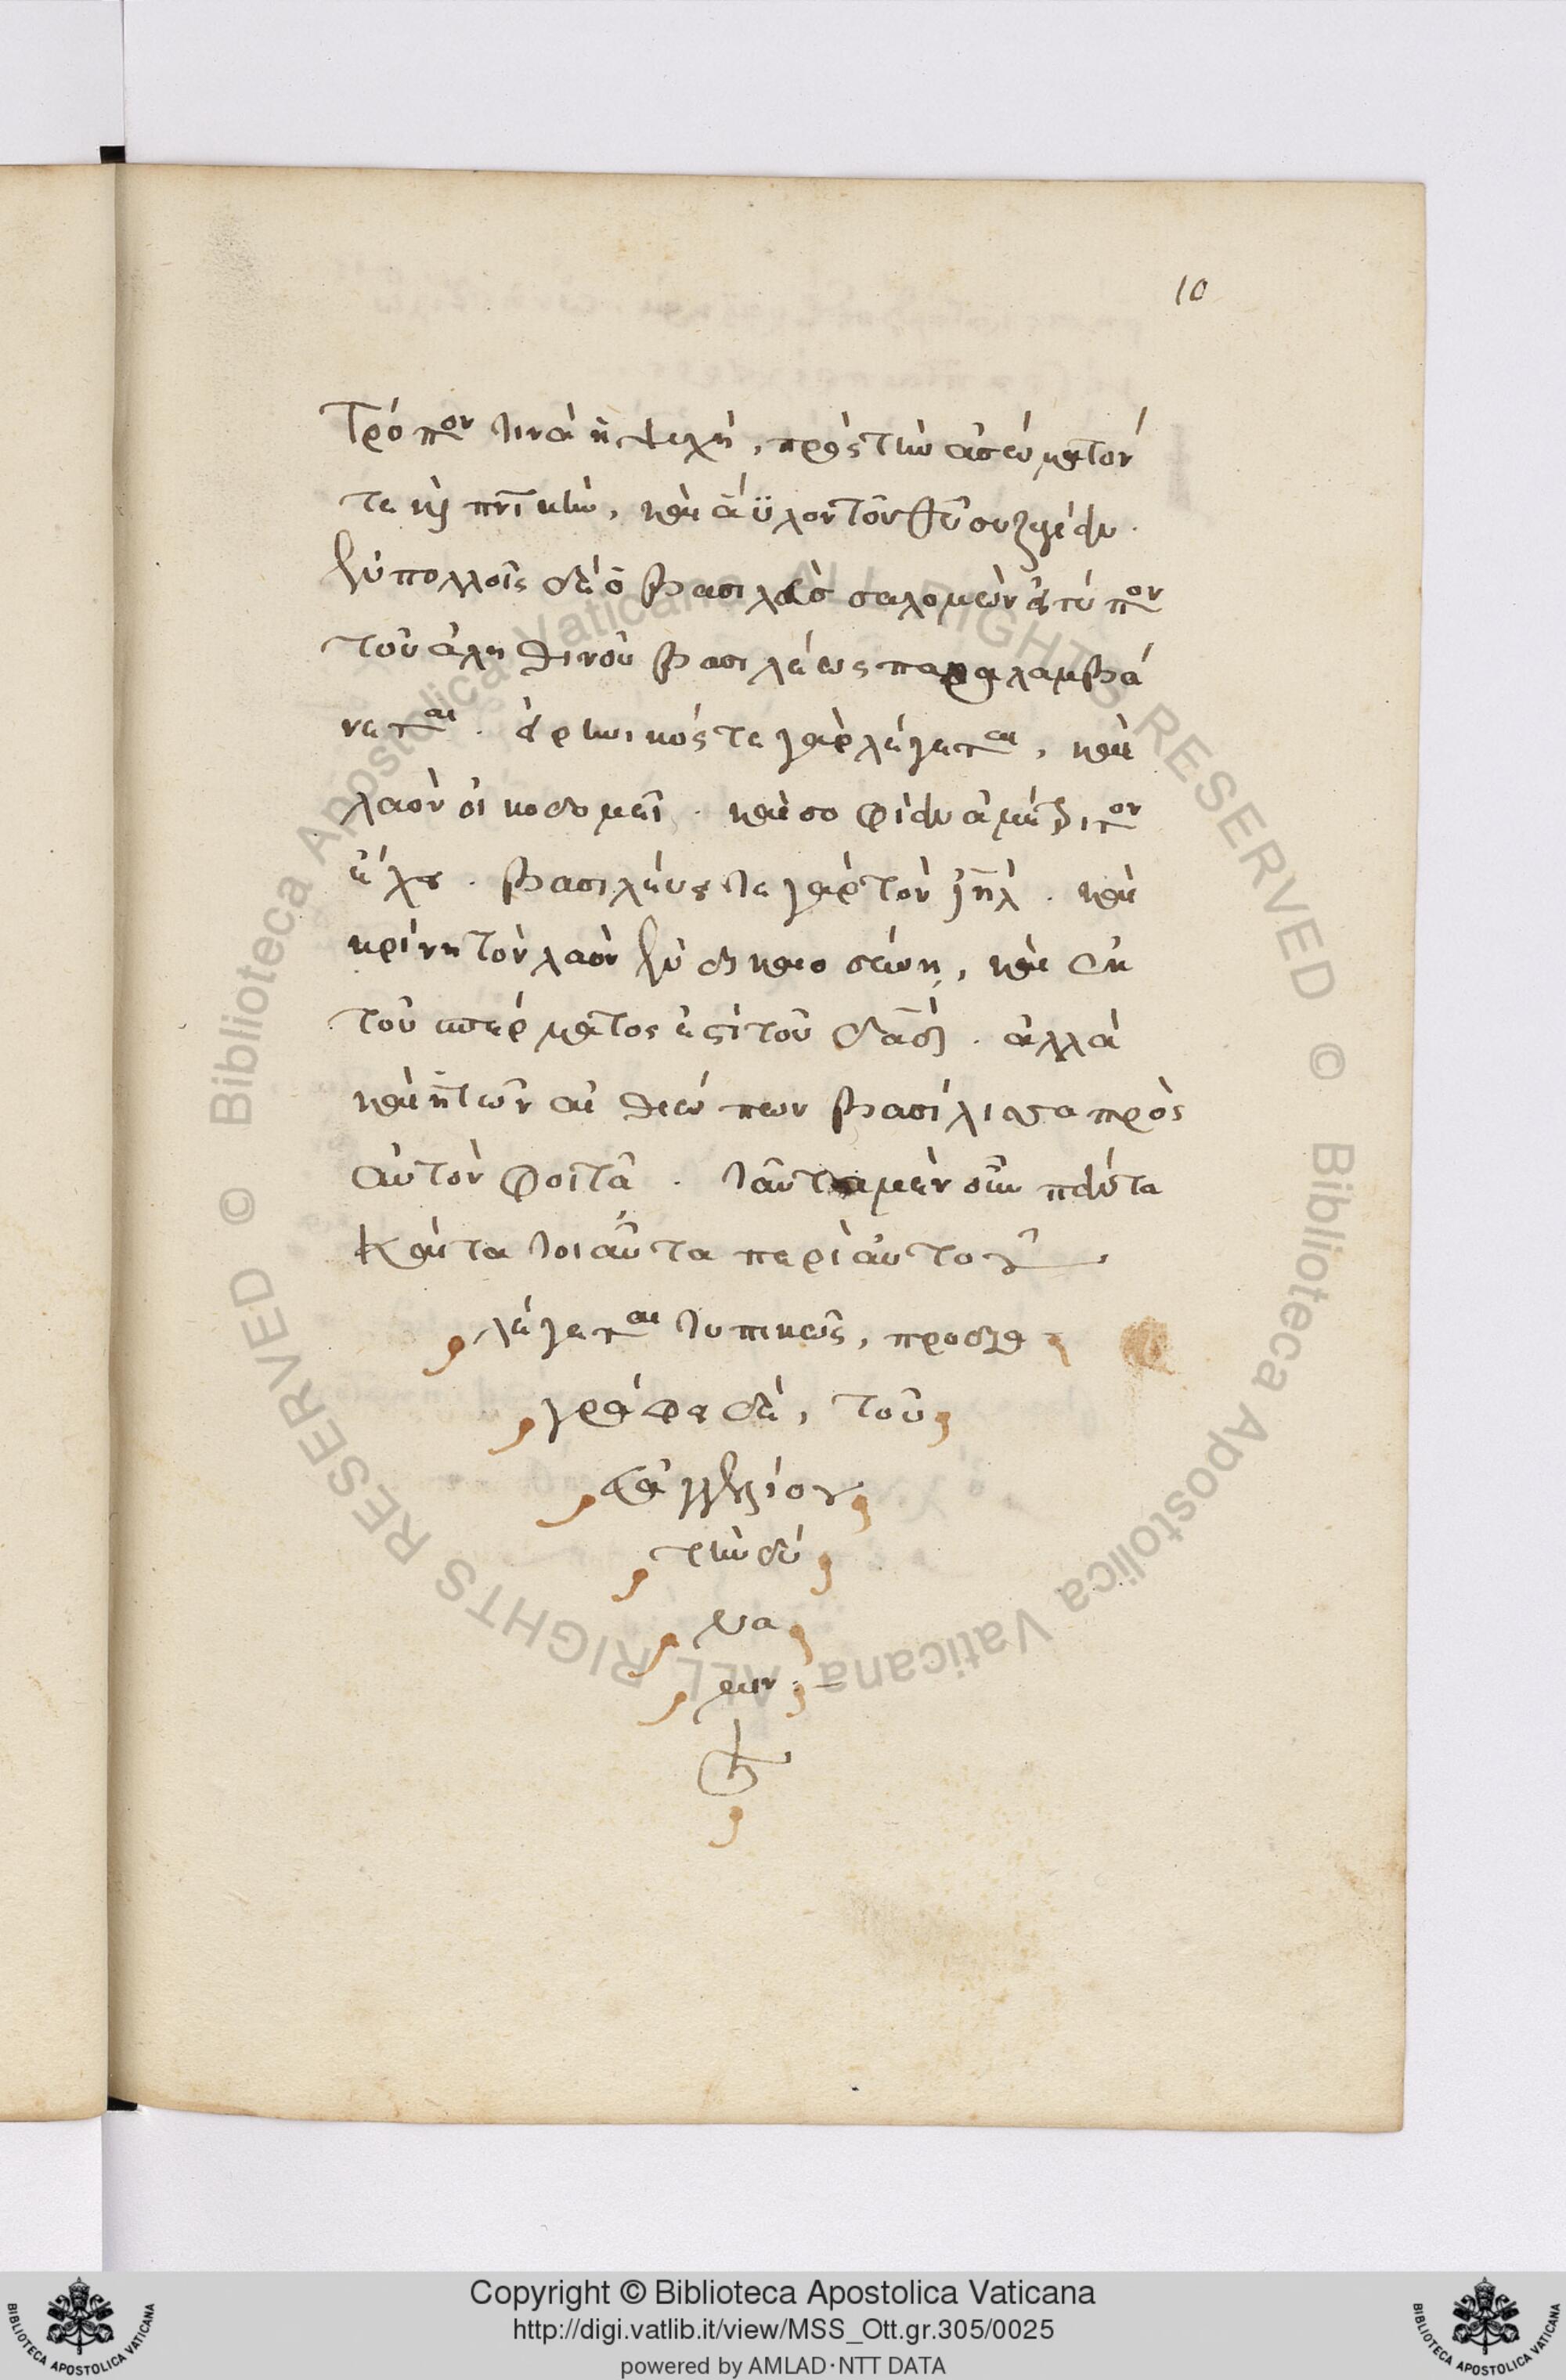 10
τρόπον τινὰ ἡ ψυχὴ, πρὸς τὴν ἀσώματόν
τε κỳ πνικὴν, καὶ ἄϋλον τοῦ θυ συζυγίαν.
ἐν πολλοῖς δὲ ὁ βασιλεὺς σαλομὼν εἰς τύπον
τοῦ ἀληθινοῦ βασιλέως παραλαμβά
νεται. εἰρηνικός τε γὰρ λέγεται, καὶ
λαὸν οἰκοδομεῖ. καὶ σοφίαν ἀμέτρητον
ἔχει. βασιλεύει τε γὰρ τὸν ιηλ. καὶ
κρίνη τὸν λαὸν ἐν δικαιοσύνη, καὶ ἐκ
τοῦ σπέρματος ἐστὶ τοῦ δαδ. ἀλλὰ
καὶ ἡ τῶν αἰθιώπων βασίλισσα πρὸς
αὐτὸν φοιτᾶ. ταῦτα μὲν οὖν πάντα
καὶ τὰ τοιαῦτα περὶ αὐτοῦ
λέγεται τυπικῶς, προδια
γράφει δὲ, τοῦ
εὐαγγελίου
τὴν δύ
να
μιν:–
Copyright © Biblioteca Apostolica Vaticana
http://digi.vatlib.it/view/MSS_Ott.gr.305/0025
powered by AMLAD·NTT DATA
BIBLIOTECA APOSTOLICA VATICANA
BIBLIOTECA APOSTOLICA VATICANA
© Biblioteca Apostolica Vaticana ALL RIGHTS RESERVED
© Biblioteca Apostolica Vaticana ALL RIGHTS RESERVED